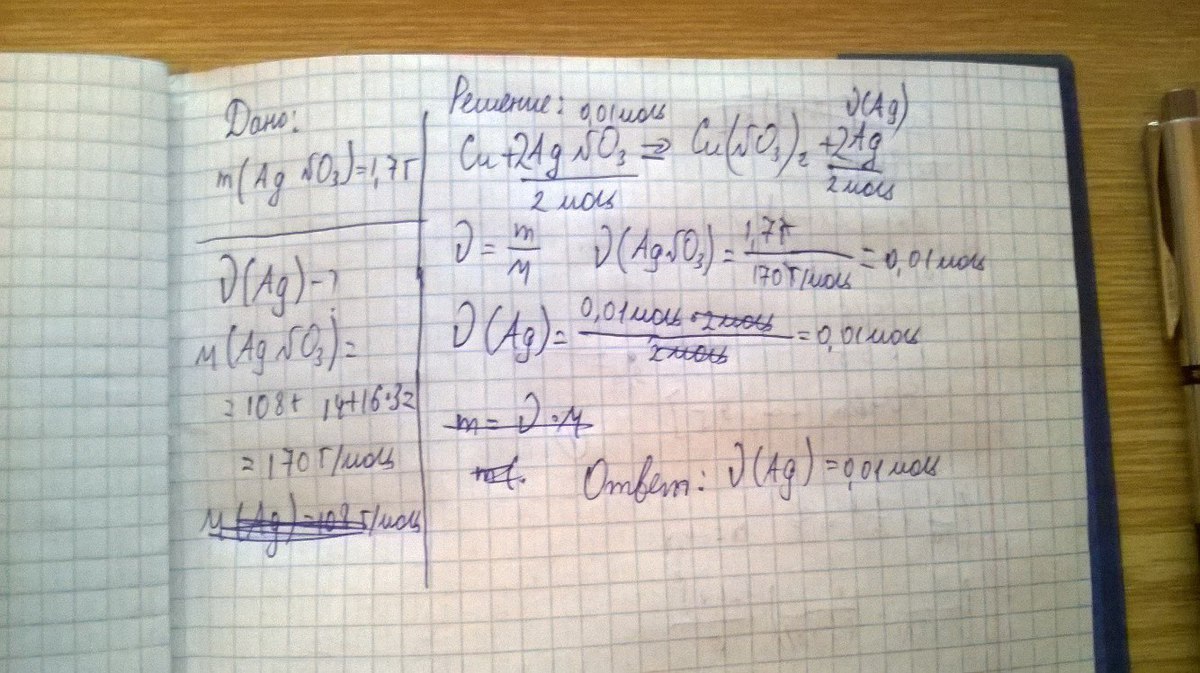 Дано:
m(AgNO3)=1,7г
ν(Ag)-?
M(AgNO3)=
=108+14+16·3=
=170г/моль
M(Ag)=108г/моль
Решение:
0,01моль ν(Ag)
Cu+2AgNO3=>Cu(NO3)2+2Ag
2моль 2моль
ν=m/M ν(AgNO3)=1,7г/170г/моль=0,01моль
ν(Ag)=0,01моль·2моль/2моль=0,01моль
m=ν·M
m(
Ответ: ν(Ag)=0,01моль